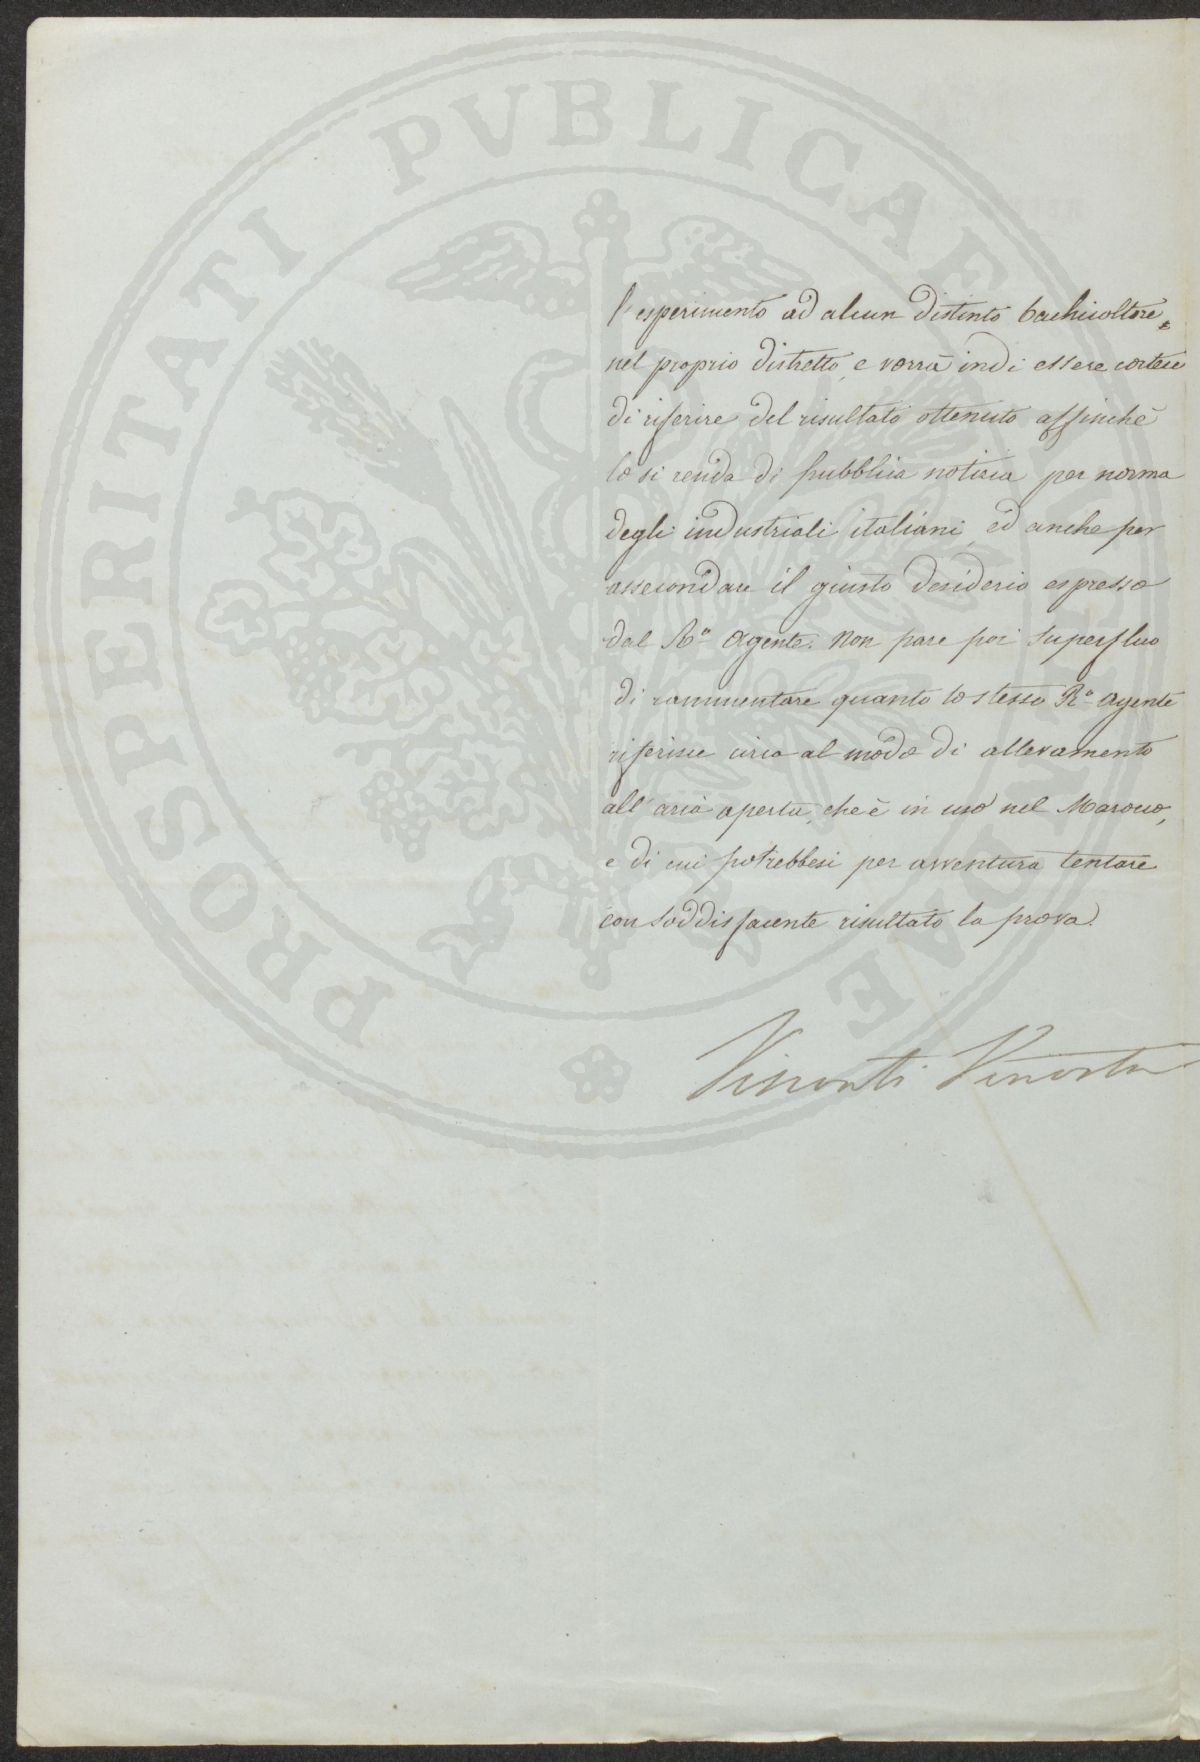 PROSPERITATI PVBLICAE AVGENDAE
l'esperimento ad alcun distinto bachicoltore
nel proprio distretto, e vorrà indi essere cortese
di riferire del risultato ottenuto affinchè
lo si renda di pubblica notizia per norma
degli industriali italiani, ed anche per
assecondare il giusto desiderio espresso
dal Rº Agente. Non pare poi superfluo
di rammentare quanto lo stesso Rº Agente
riferisce circa al modo di allevamento
all'aria aperta, che è in uso nel Marocco,
e di cui potrebbesi per avventura tentare
con soddisfacente risultato la prova.
Visconti Venosta